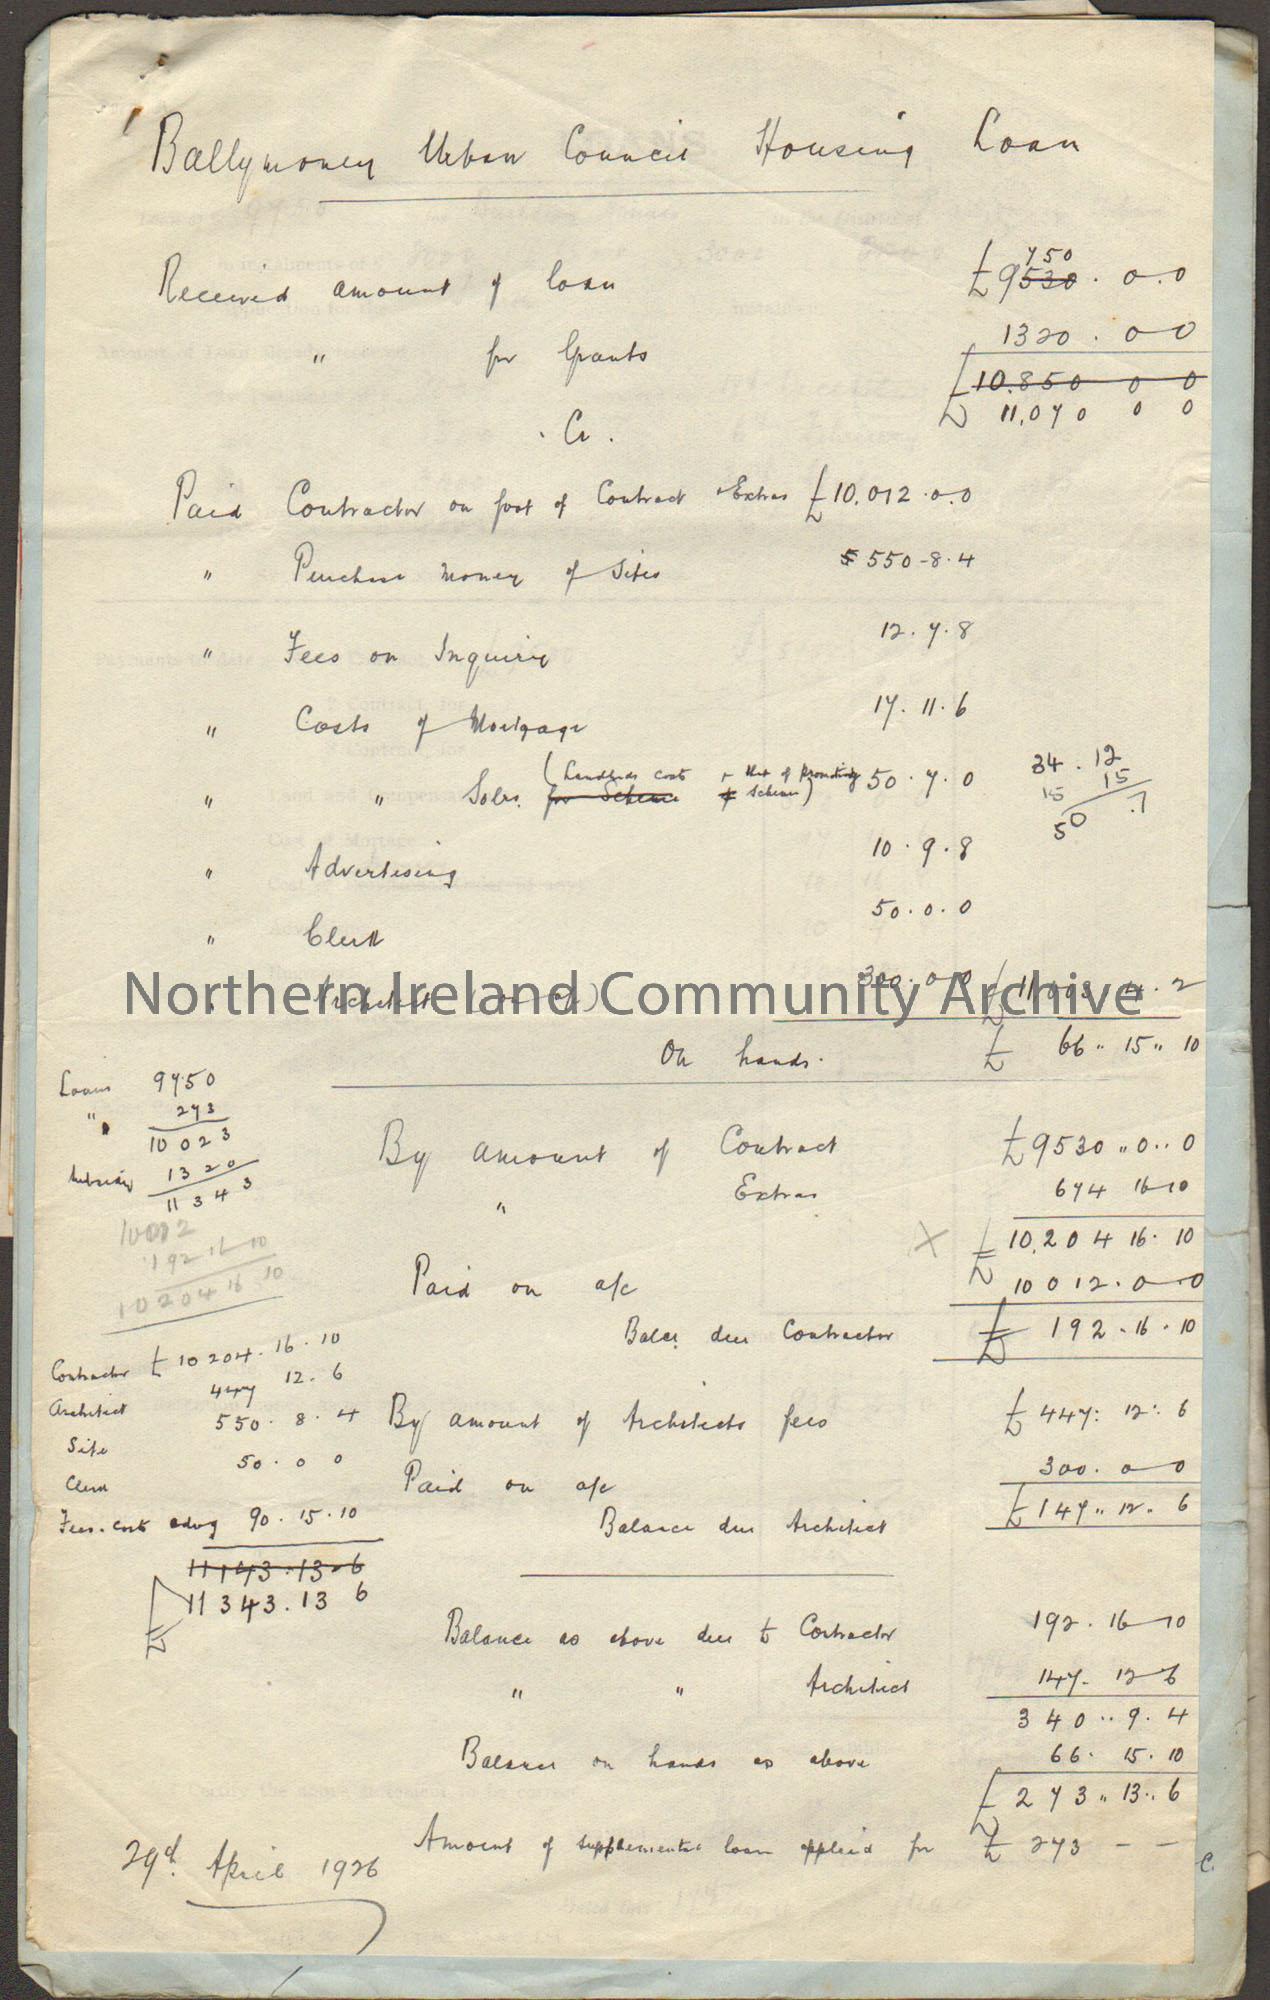 Ballymoney Urban Council Housing Loan
Received amount of loan £9530 . 0 . 0
750
" for Grants 1320 . 0 0
£10.850 0 0
Cr. £ 11,070 0 0
Paid Contractor on foot of Contract + Extras £10,012 . 0 . 0
" Purchase money of Sites 550 - 8 . 4
" Fees on Inquiry 12 . 7 . 8
" Costs of Mortgage 17 . 11 . 6
" " Solrs. for Scheme (Landlords costs + that of Promoting Scheme) 50 . 7 . 0
34 . 12
15 15
50 . 7
" Advertising 10 . 9 . 8
" Clerk 50 . 0 . 0
Architect (on a/c) 300 . 0 . 0 £ 11,003 . 4 . 2
Northern Ireland Community Archive
On hands. £ 66 " 15 " 10
Loans 9750
" 273
10023
Subsidy 1320
11343
10012
192 16 10
10204 16 10
By amount of Contract £9530 " 0 " 0
" Extras 674 16 10
X £ 10,204 16 . 10
Paid on a/c 10012 . 0 0
Balce. due Contractor £ 192 . 16 . 10
Contractor £ 10204 . 16 . 10
Architect 447 12 . 6
Site 550 . 8 . 4
Clerk 50 . 0 0
Fees . cost advg 90 . 15 . 10
11143 . 13 . 6
£ 11343 . 13 6
By amount of Architects fees £ 447 : 12 : 6
Paid on a/c 300 . 0 0
Balance due Architect £ 147 " 12 . 6
Balance as above due to Contractor 192 . 16 10
" " Architect 147 . 12 6
340 " 9 . 4
Balance on hands as above 66 . 15 . 10
£ 273 " 13 " 6
Amount of supplemental loan applied for £ 273 – –
C.
29d. April 1926